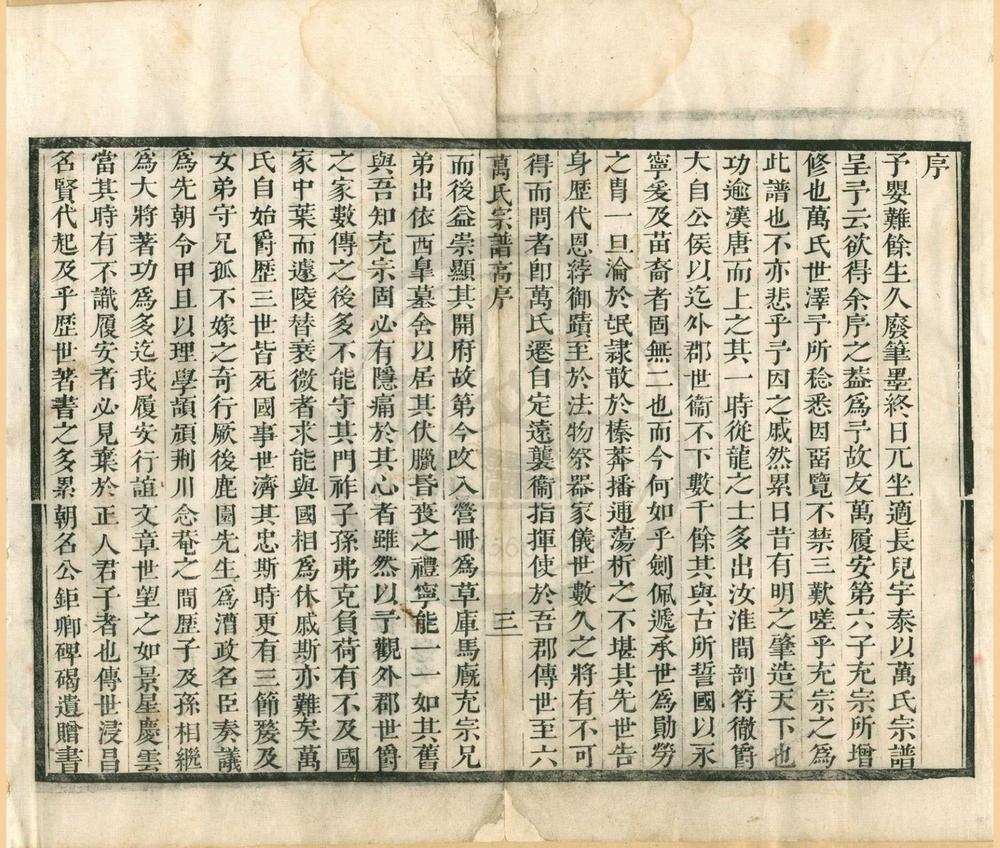 序
予嬰難餘生久廢筆墨終日兀坐適長兒宇泰以萬氏宗譜
呈予云欲得余序之葢爲予故友萬履安第六子充宗所增
修也萬氏世澤予所稔悉因畱覽不禁三歎嗟乎充宗之爲
此譜也不亦悲乎予因之戚然累日昔有明之肇造天下也
功逾漢唐而上之其一時從龍之士多出汝淮間剖符徹爵
大自公侯以迄外郡世衞不下數千餘其與古所誓國以永
寧爰及苗裔者固無二也而今何如乎劍佩遞承世爲勛勞
之胄一旦淪於氓隷散於榛莽播逋蕩析之不堪其先世告
身歷代恩綍御蹟至於法物祭器家儀世數久之將有不可
得而問者卽萬氏遷自定遠襲衞指揮使於吾郡傳世至六
萬氏宗譜高序
三
而後益崇顯其開府故第今改入營冊爲草庫馬廐充宗兄
弟出依西皐墓舍以居其伏臘昬喪之禮寧能一一如其舊
與吾知充宗固必有隱痛於其心者雖然以予觀外郡世爵
之家數傳之後多不能守其門祚子孫弗克負荷有不及國
家中葉而遽陵替衰微者求能與國相爲休戚斯亦難矣萬
氏自始爵歷三世皆死國事世濟其忠斯時更有三節嫠及
女弟守兄孤不嫁之奇行厥後鹿園先生爲漕政名臣奏議
爲先朝令甲且以理學頡頏荆川念菴之間歷子及孫相繼
爲大將著功爲多迄我履安行誼文章世望之如景星慶雲
當其時有不識履安者必見棄於正人君子者也傳世浸昌
名賢代起及乎歷世著書之多累朝名公鉅卿碑碣遺贈書